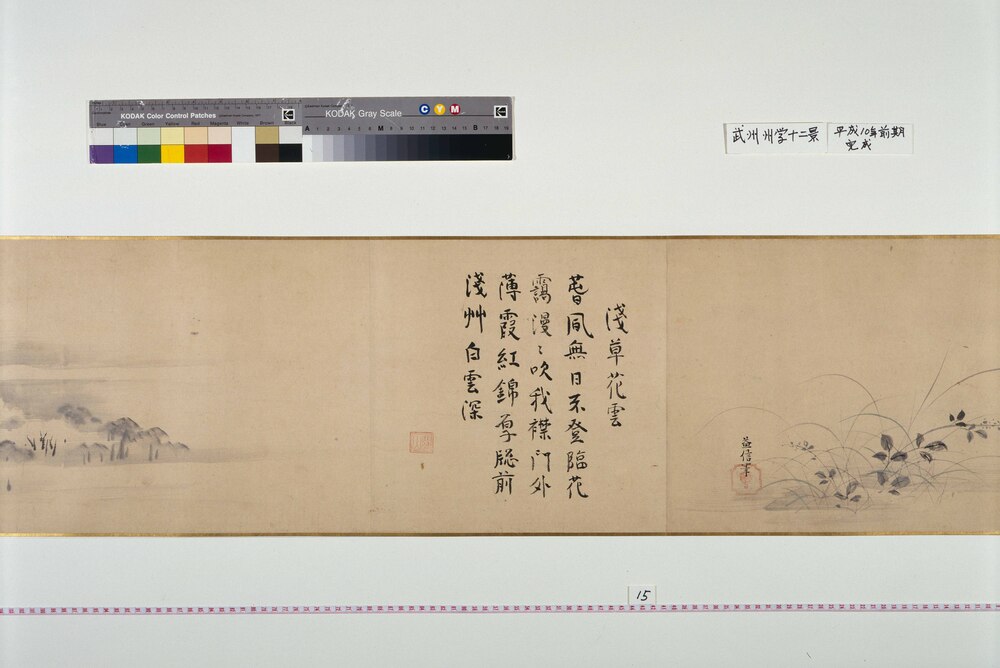 KODAK Color Control Patches
Blue Green Yellow Red Magenta White Brown Black
KODAK Gray Scale
C Y M
Kodak
A 1 2 3 4 5 6 M 8 9 10 11 12 13 14 15 B 17 18 19
武州州学十二景
平成10年前期
完成
浅草花雲
無日不登臨花
靄漫〻吹我襟門外
薄霞紅錦厚
前
淺艸白雲深
益信筆
15